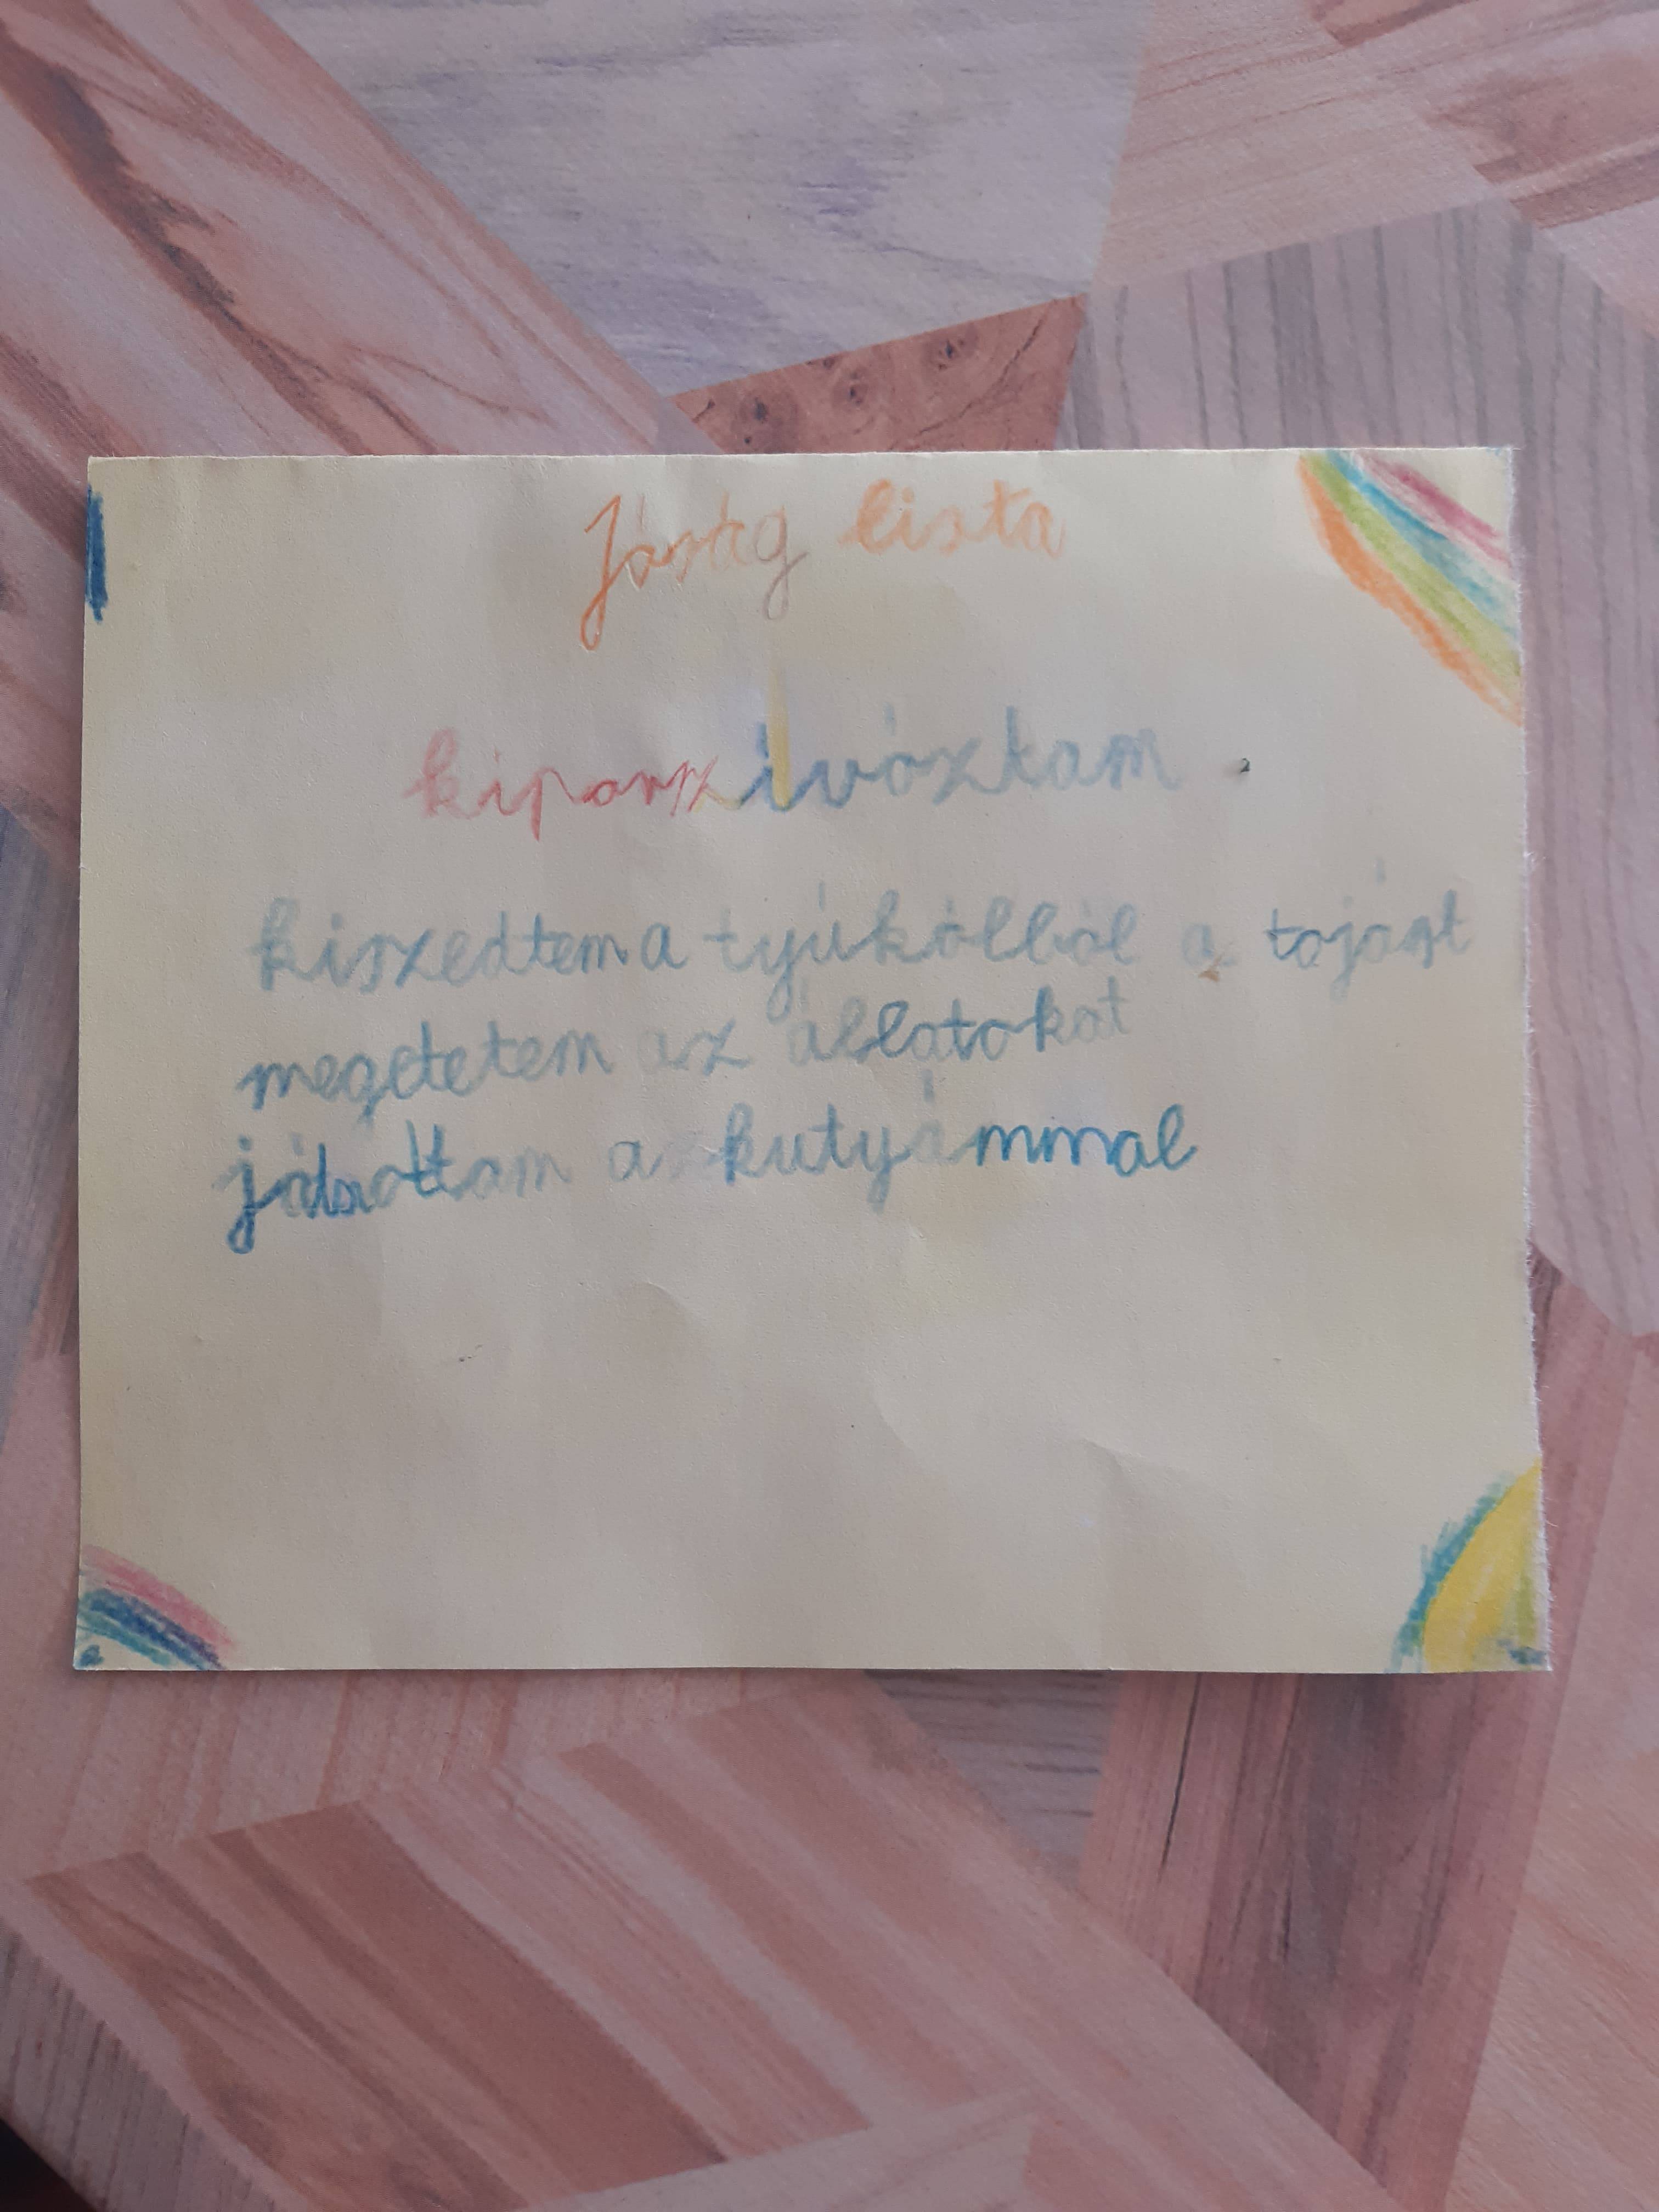 Jóság lista
kiporszivóztam
kiszedtem a tyúkólból a tojást
megetetem az állatokat
játsottam a kutyámmal